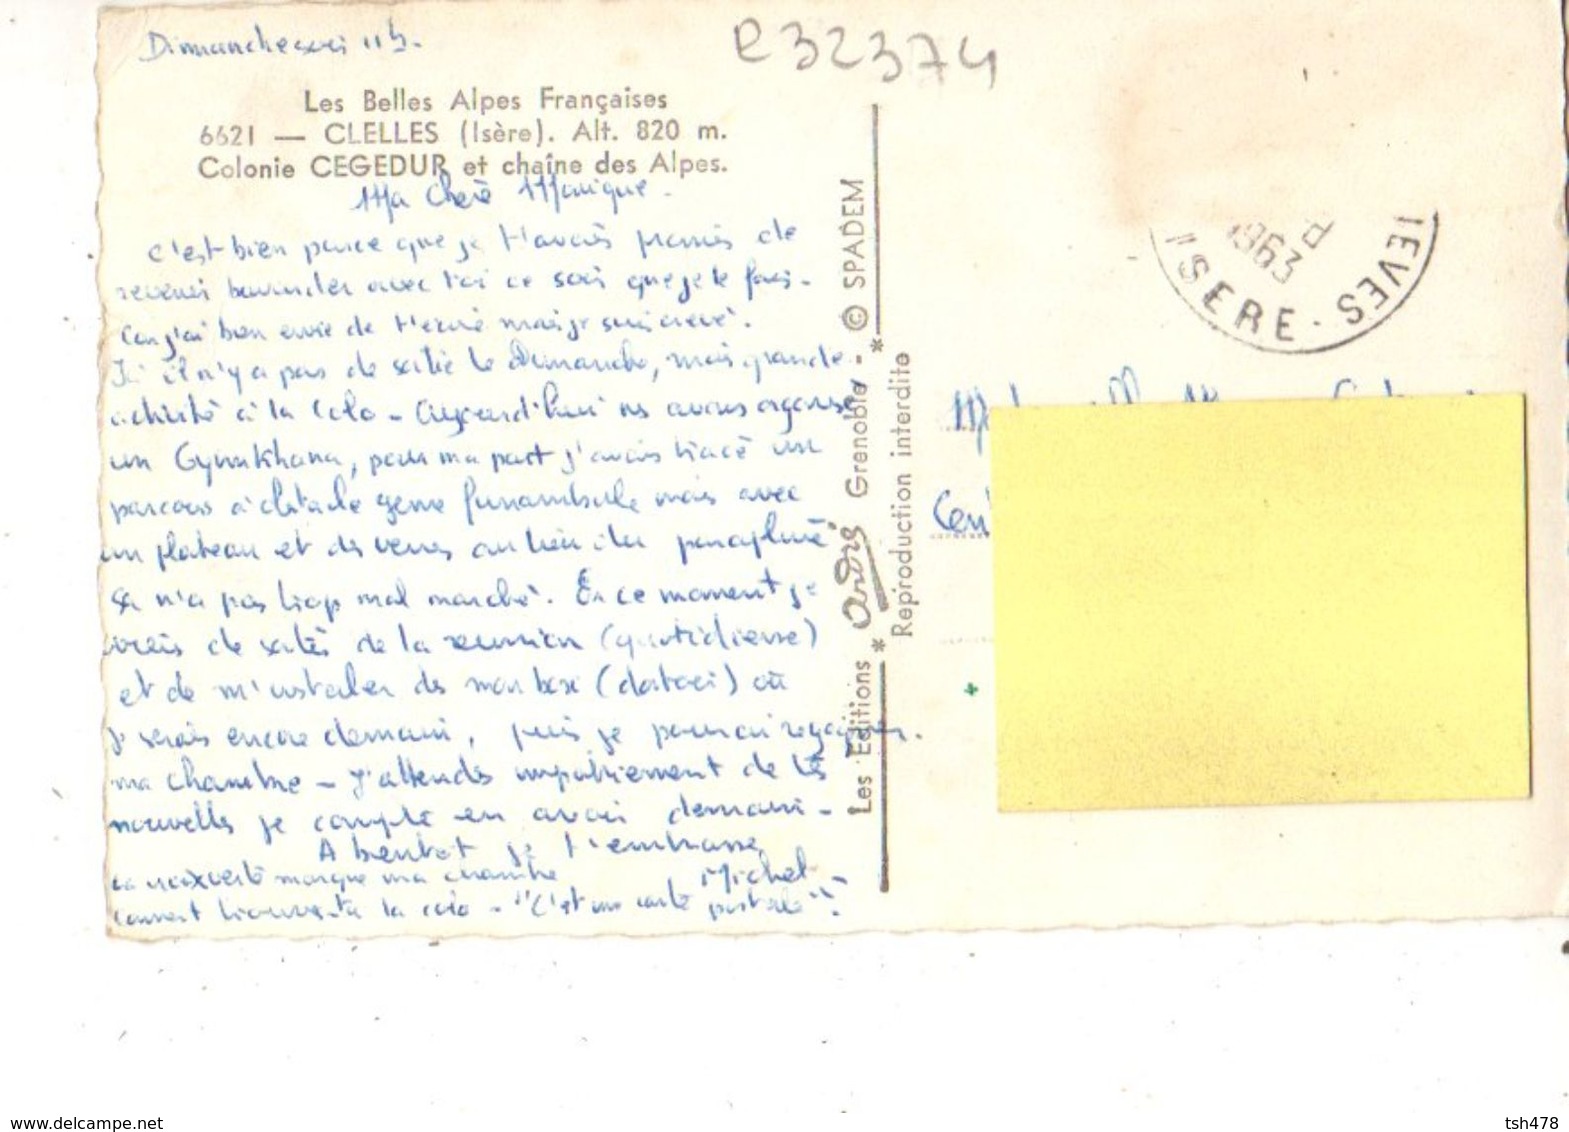 Dimanche soir 11h.
e32374
Les Belles Alpes Françaises
6621 — CLELLES (Isère). Alt. 820 m.
Colonie CEGEDUR et chaîne des Alpes.
Ma Chère Monique.
C'est bien parce que je t'avais promis de
revenir bavarder avec toi ce soir que je le fais.
Car j'ai bien envie de t'écrire mais je suis crevé.
Ici il n'y a pas de sortie le Dimanche, mais grande
activité à la colo - Aujourd'hui ns avons organisé
un Gymukhana, pour ma part j'avais tracé un
parcours à obstacle genre funambule mais avec
un plateau et des verres au lieu du parapluie
ça n'a pas trop mal marché. En ce moment je
viens de sortir de la reunion (quotidienne)
et de m'installer ds mon box (dortoir) où
je serais encore demain, puis je pourrai regagner
ma chambre - J'attends impatiemment de tes
nouvelles je compte en avoir demain -
A bientot je t'embrasse
Michel
la croix verte marque ma chambre
comment trouves tu la colo - "C'est une carte postale".
Les Editions * andré Grenoble - * © SPADEM
Reproduction interdite
1963
IEVES
ISERE
www.delcampe.net
tsh478